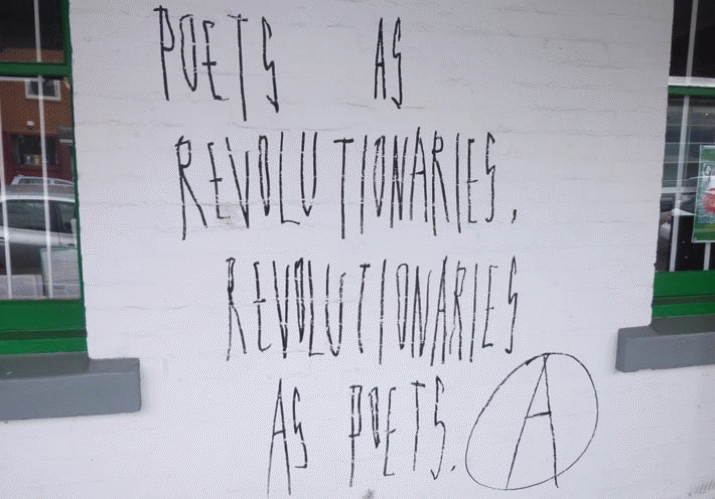 POETS AS
REVOLUTIONARIES.
REVOLUTIONARIES
AS POETS. A